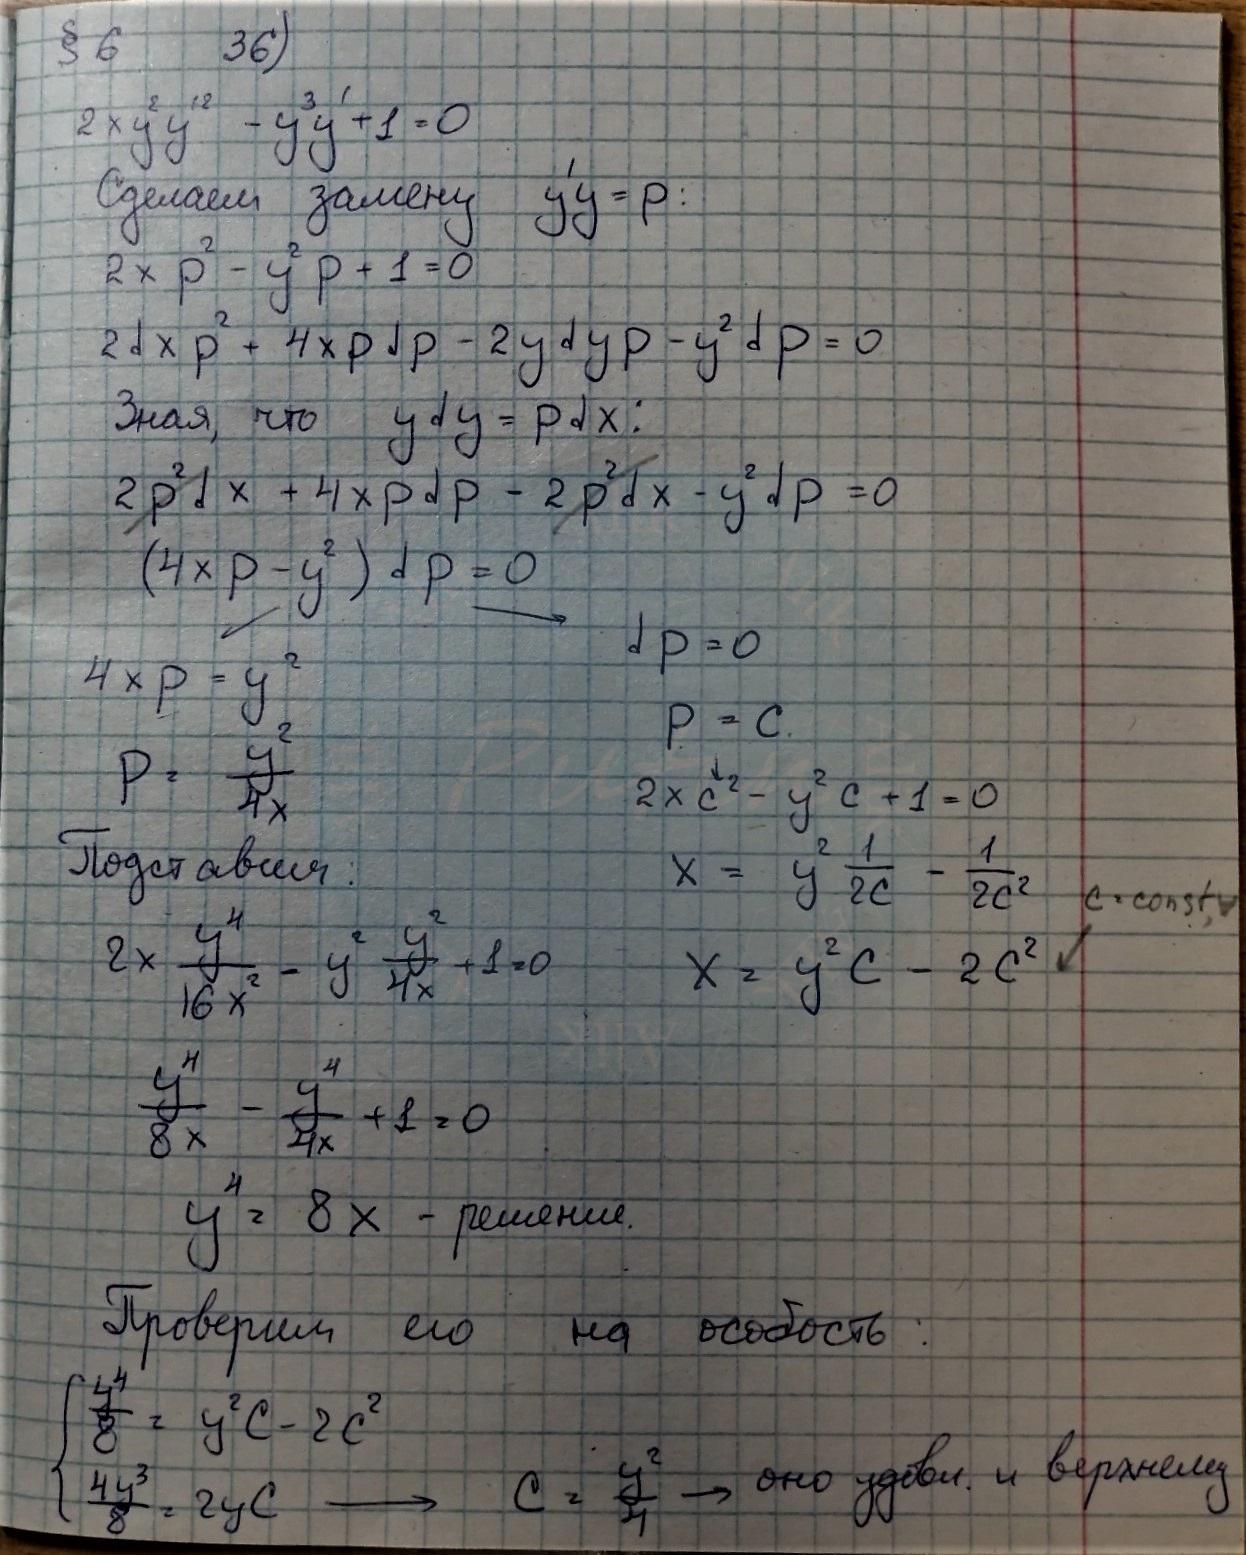 § 6 36)
2xy²y'² - y³y' + 1 = 0
Сделаем замену y'y = p:
2xp² - y²p + 1 = 0
2dxp² + 4xpdp - 2ydyp - y²dp = 0
Зная, что ydy = pdx:
2p²dx + 4xpdp - 2p²dx - y²dp = 0
(4xp - y²)dp = 0
4xp = y²
p = y²/4x
Подставим:
2x y⁴/16x² - y² y²/4x + 1 = 0
y⁴/8x - y⁴/4x + 1 = 0
y⁴ = 8x - решение.
dp = 0
p = C.
2xC² - y²C + 1 = 0
x = y² 1/2C - 1/2C²
C = const, ∀
x = y²C - 2C²
Проверим его на особость:
{ y⁴/8 = y²C - 2C²
4y³/8 = 2yC → C = y²/4 → оно удовл. и верхнему